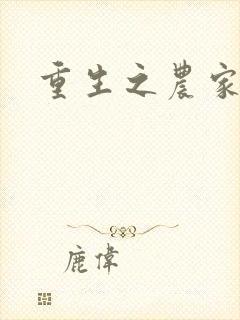 重生之農家
鹿偉